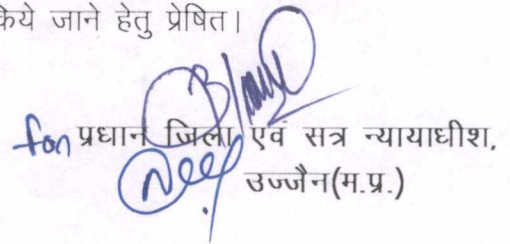 किये जाने हेतु प्रेषित।
for प्रधान जिला एवं सत्र न्यायाधीश,
उज्जैन(म.प्र.)